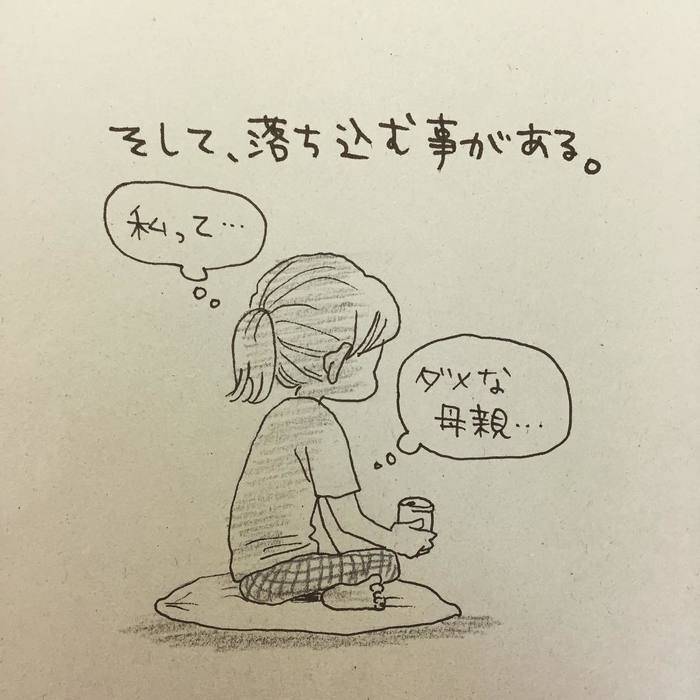 そして、落ち込む事がある。
私って…
ダメな
母親…